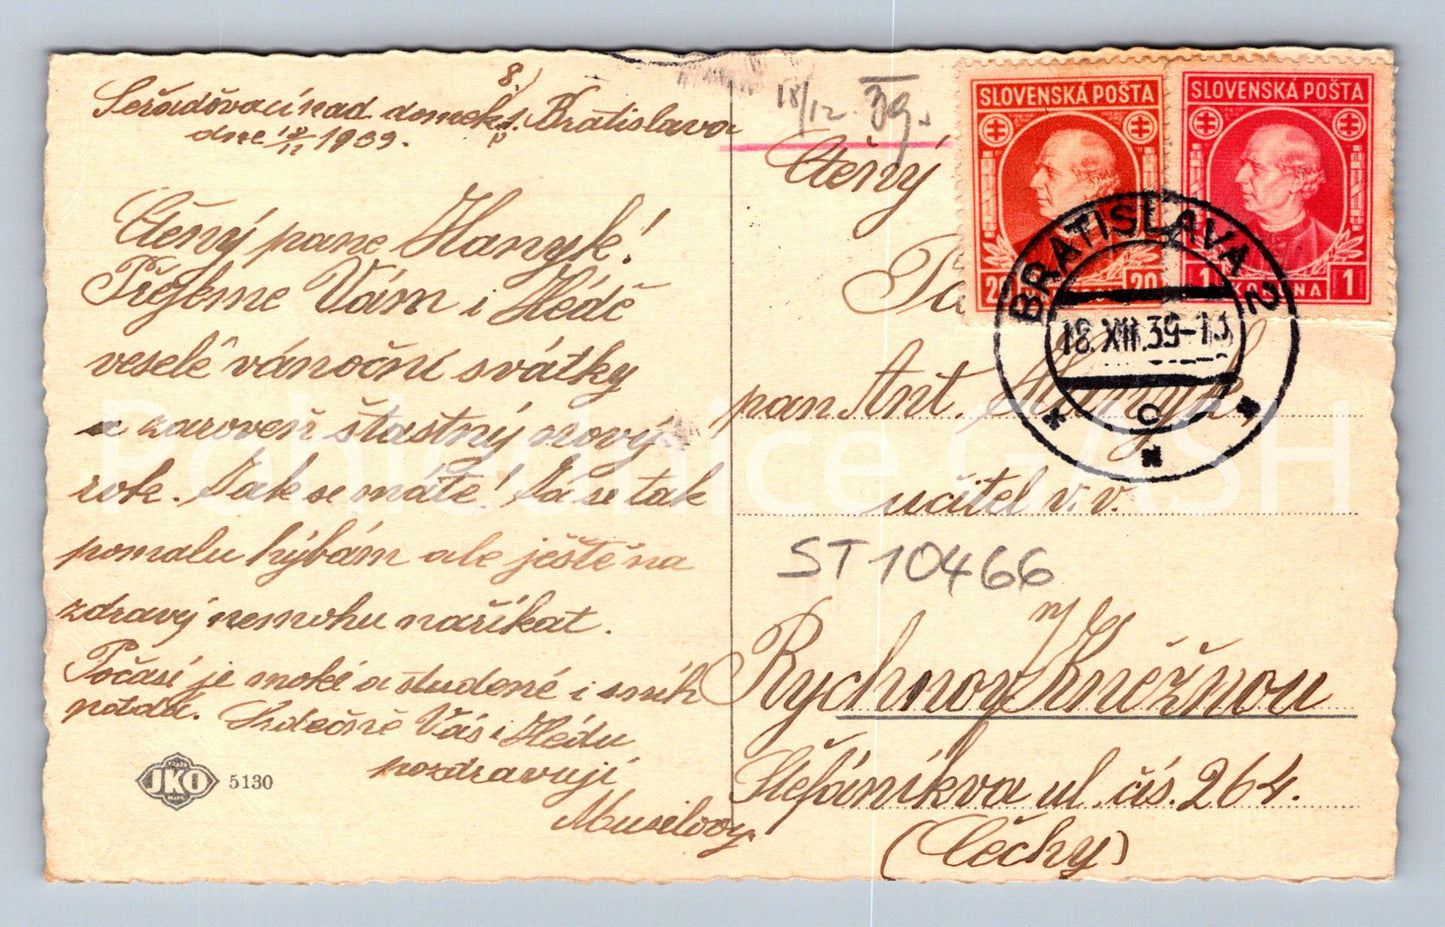 8.)
Seřaďovací nad. domek s. Bratislava
dne 1939.
Ctěný pane Hanyk!
Přejeme Vám i Hédě
veselé vánoční svátky
a zároveň šťastný nový
rok. Jak se máte! Já se tak
pomalu hýbám ale ještě na
zdravý nemohu naříkat.
Počasí je mokré a studené i sníh
padá. Srdečně Vás i Hédu
pozdravují
Musilovy
JKO 5130
18/12. 39.
SLOVENSKÁ POŠTA
20
SLOVENSKÁ POŠTA
1 KORUNA 1
BRATISLAVA 2
18.XII.39-13
C
Ctěný
pan Ant. Hanyk,
učitel v.v.
ST10466
Rychnov n/Kněžnou
Štefánikva ul. čís. 264.
(Čechy)
Pohlednice GASH